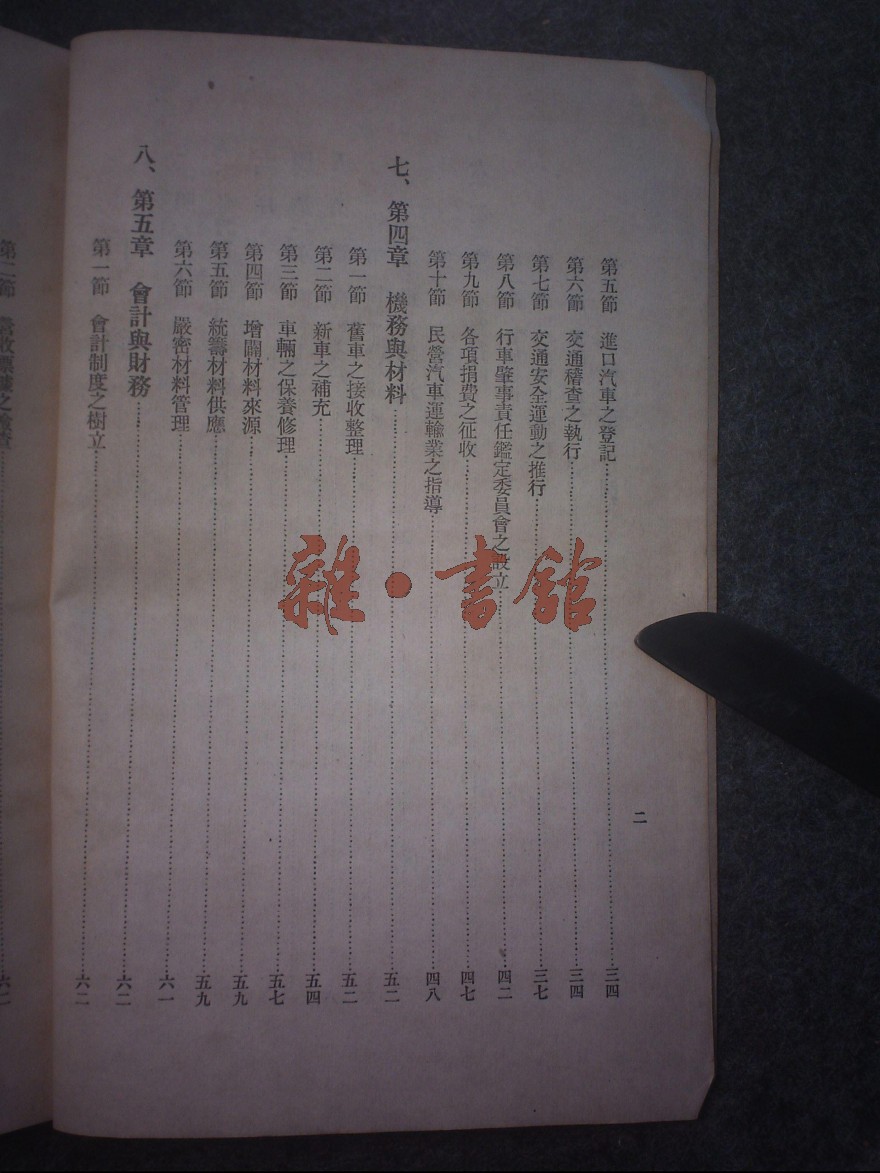 二
第五節 進口汽車之登記………三四
第六節 交通稽查之執行………三四
第七節 交通安全運動之推行………三七
第八節 行車肇事責任鑑定委員會之設立………四二
第九節 各項捐費之征收………四七
第十節 民營汽車運輸業之指導………四八
七、第四章 機務與材料………五二
第一節 舊車之接收整理………五二
第二節 新車之補充………五四
第三節 車輛之保養修理………五七
第四節 增闢材料來源………五九
第五節 統籌材料供應………五九
第六節 嚴密材料管理………六一
八、第五章 會計與財務………六二
第一節 會計制度之樹立………六二
第二節 營收票據之檢查
雜·書館